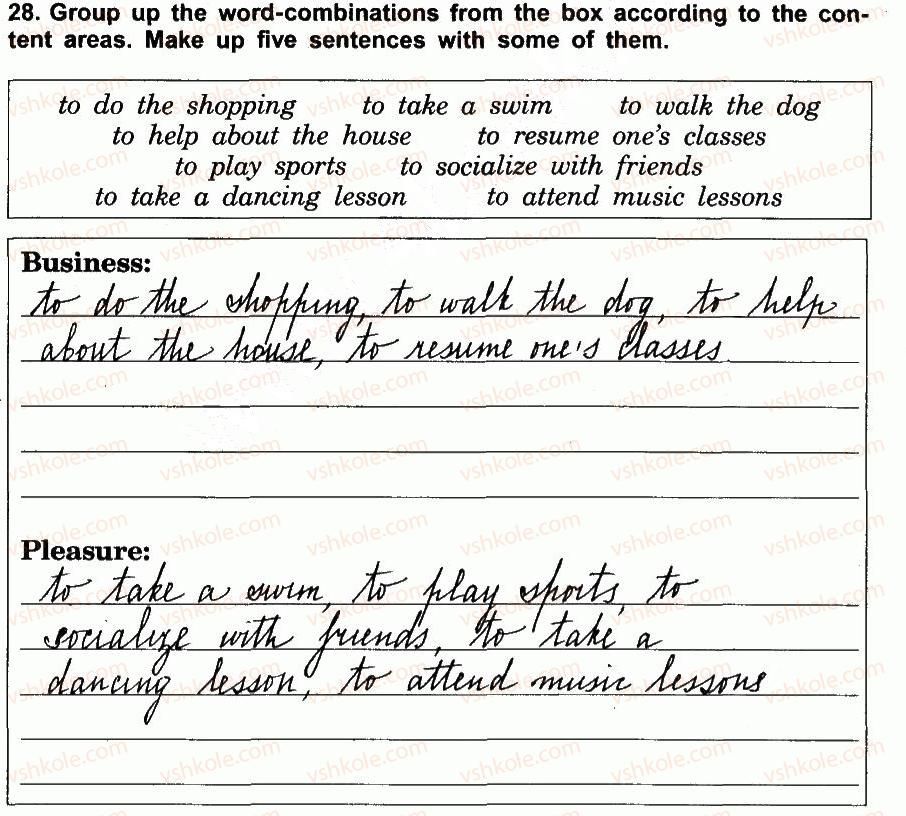 28. Group up the word-combinations from the box according to the con-
tent areas. Make up five sentences with some of them.
to do the shopping to take a swim to walk the dog
to help about the house to resume one's classes
to play sports to socialize with friends
to take a dancing lesson to attend music lessons
Business:
to do the shopping, to walk the dog, to help
about the house, to resume one's classes
Pleasure:
to take a swim, to play sports, to
socialize with friends, to take a
dancing lesson, to attend music lessons
vshkole.com